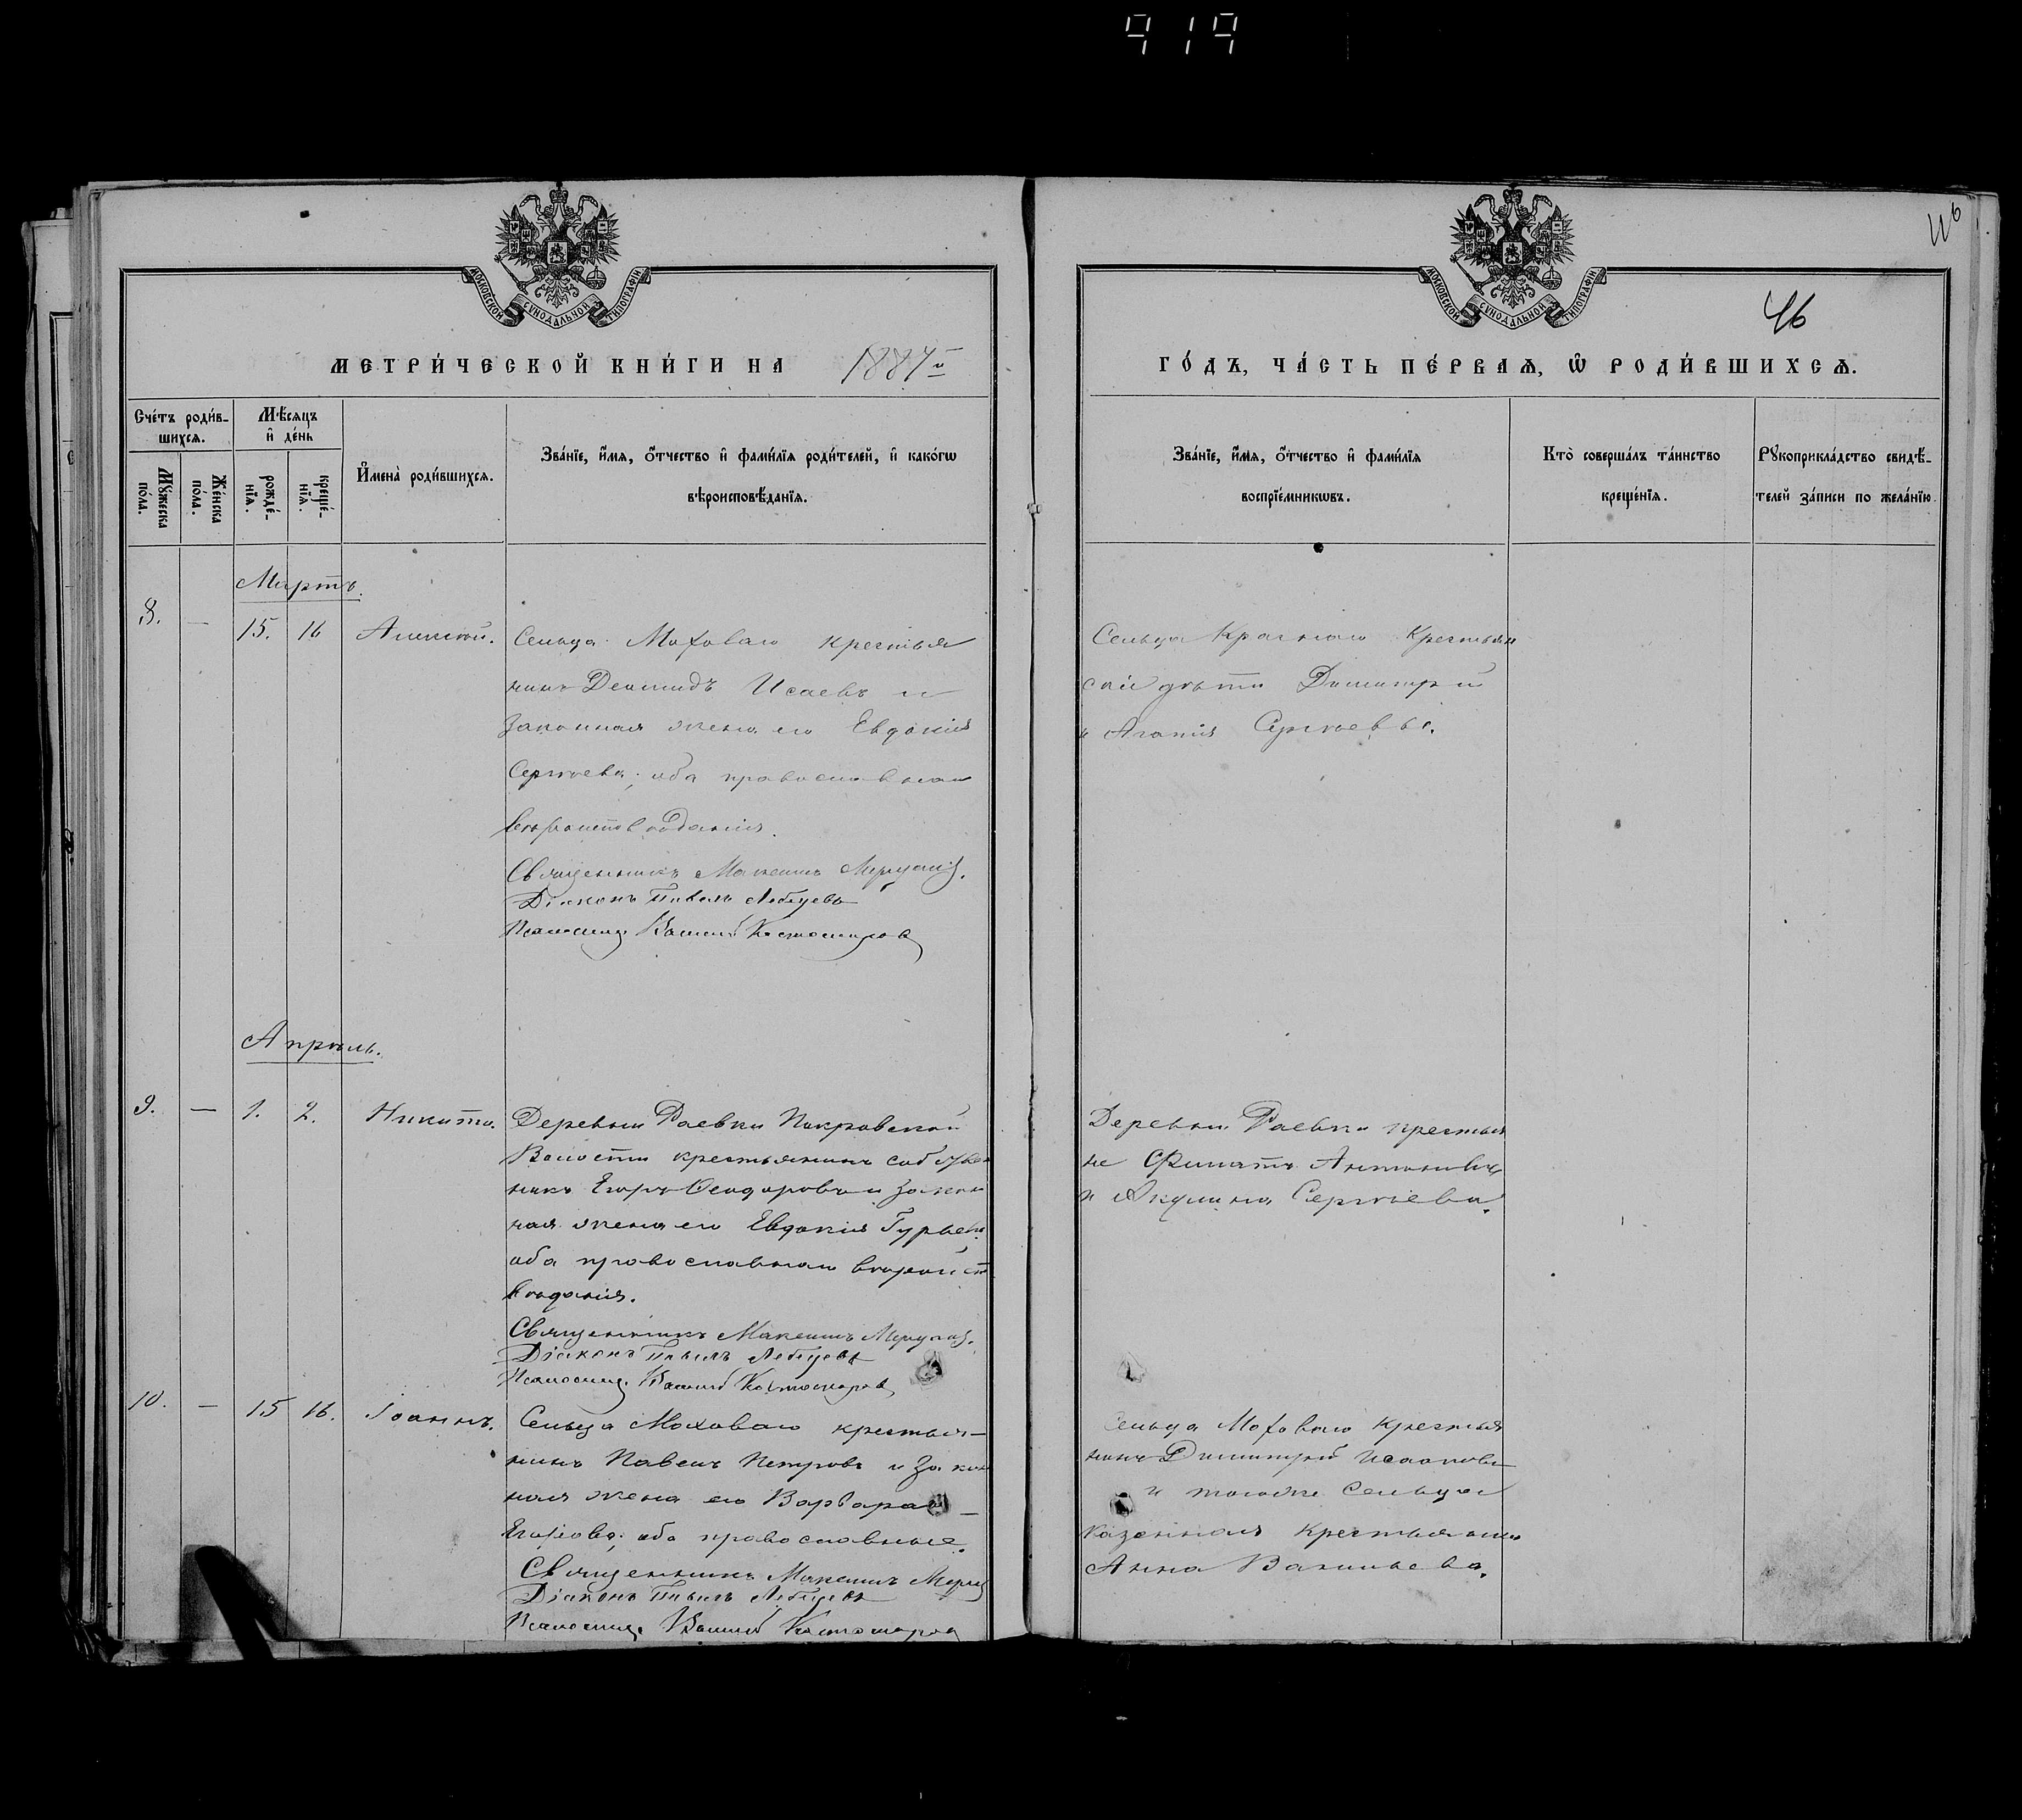 919
46
МОСКОВСКОЙ СѴНОДАЛЬНОЙ ТИПОГРАФІИ
МОСКОВСКОЙ СѴНОДАЛЬНОЙ ТИПОГРАФІИ
46
МЕТРИ́ЧЕСКОЙ КНИ́ГИ НА 1887й
ГО́ДЪ, ЧА́СТЬ ПЕ́РВАѦ, Ѿ РОДИ́ВШИХСѦ.
Сче́тъ роди́в-
шихсѧ.
Мꙋ́жеска по́ла.
Же́нска по́ла.
Мѣ́сѧцъ
и҆ де́нь
рожде́-
нїѧ.
креще́-
нїѧ.
И҆мена̀ роди́вшихсѧ.
Зва́нїе, и҆́мѧ, ѻ҆́тчество и҆ фами́лїѧ роди́телей, и҆ како́гѡ
вѣроисповѣ́данїѧ.
Зва́нїе, и҆́мѧ, ѻ҆́тчество и҆ фами́лїѧ
воспрїе́мникѡвъ.
Кто̀ соверша́лъ та́инство
креще́нїѧ.
Рꙋкоприкла́дство свидѣ́-
телей за́писи по жела́нїю.
Мартъ.
8. — 15. 16 Алексѣй.
Сельца Моховаго крестья
нинъ Деомидъ Исаевъ и
законная жена его Евдокія
Сергѣева; оба православнаго
вѣроисповѣданія.
Священникъ Максимъ
Діаконъ Павелъ Лебедевъ
Псаломщ. Василій Костомаровъ
Сельца Краснаго крестьян
скіе дѣти Димитрій
и Агапія Сергѣевы.
Апрѣль.
9. — 1. 2. Никита.
Деревни Раевки Покровской
Волости крестьянинъ собствен
никъ Егоръ Ѳеодоровъ и закон
ная жена его Евдокія Гурьева
оба православнаго вѣроисп
вѣданія.
Священникъ Максимъ
Діаконъ Павелъ Лебедевъ
Псаломщ. Василій Костомаровъ
Деревни Раевки крестья
не Филатъ Антоновъ
и Акулина Сергѣева.
10. — 15 16. Іоаннъ.
Сельца Моховаго крестья-
нинъ Павелъ Петровъ и закон
ная жена его Варвара
Егорова; оба православные.
Священникъ Максимъ
Діаконъ Павелъ Лебедевъ
Псаломщ. Василій Костомаровъ
Сельца Моховаго крестья
нинъ Димитрій
и тогоже Сельца
казенная крестьянка
Анна Васильева.